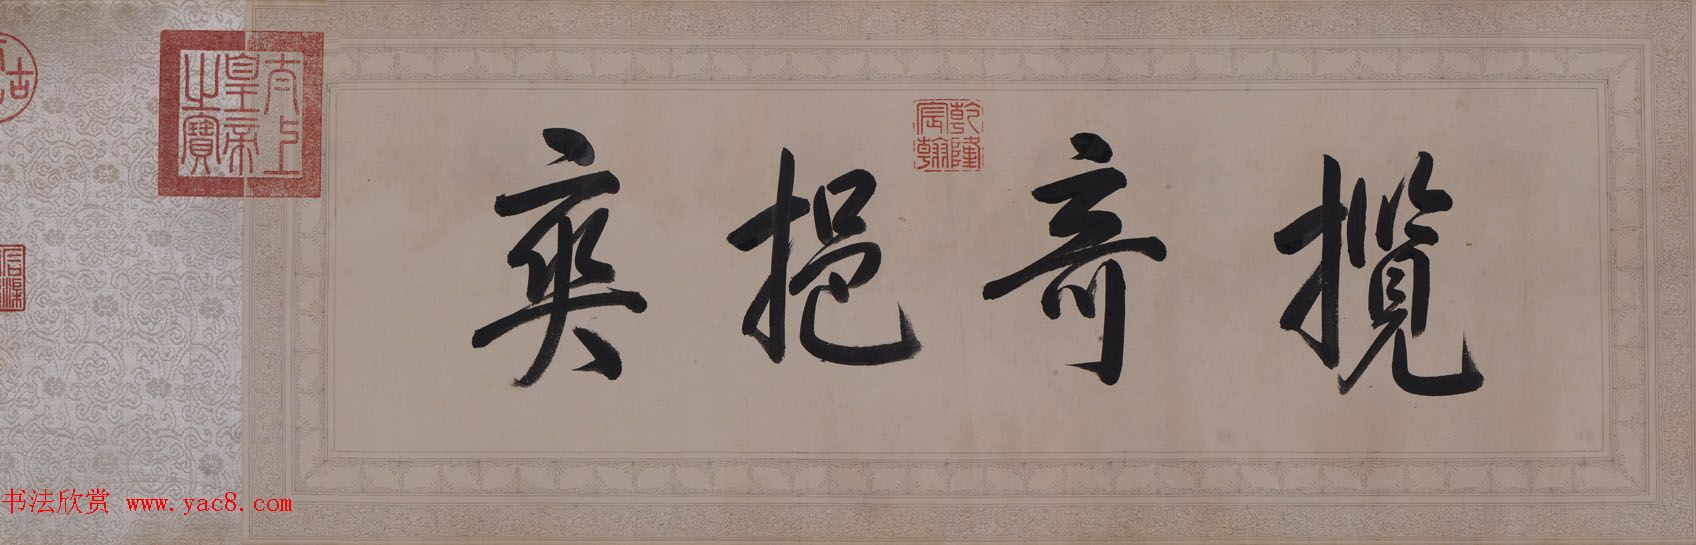 攬奇挹爽
乾隆宸翰
太上皇帝之寶
书法欣赏 www.yac8.com